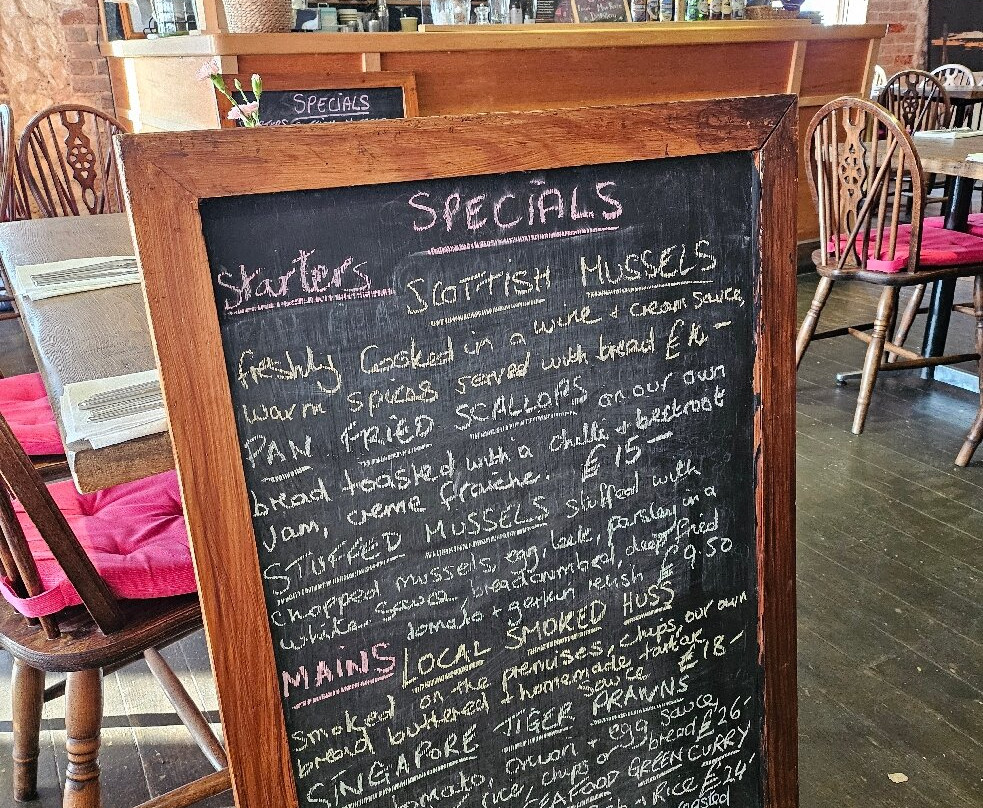 SPECIALS
SPECIALS
Starters SCOTTISH MUSSELS
freshly Cooked in a wine + cream sauce,
warm spices served with bread
PAN FRIED SCALLOPS on our own
bread toasted with a chilli + beetroot
jam, creme fraiche. £15-
STUFFED MUSSELS stuffed with
chopped mussels, egg, leek, parsley in a
white sauce breadcrumbed, deep fried
tomato + gerkin relish £9.50
MAINS LOCAL SMOKED HUSS
smoked on the premises, chips, our own
bread buttered & homemade tartar
sauce £18-
SINGAPORE TIGER PRAWNS
tomato, onion + egg sauce
rice, chips or bread £26-
SEAFOOD GREEN CURRY
Rice £24-